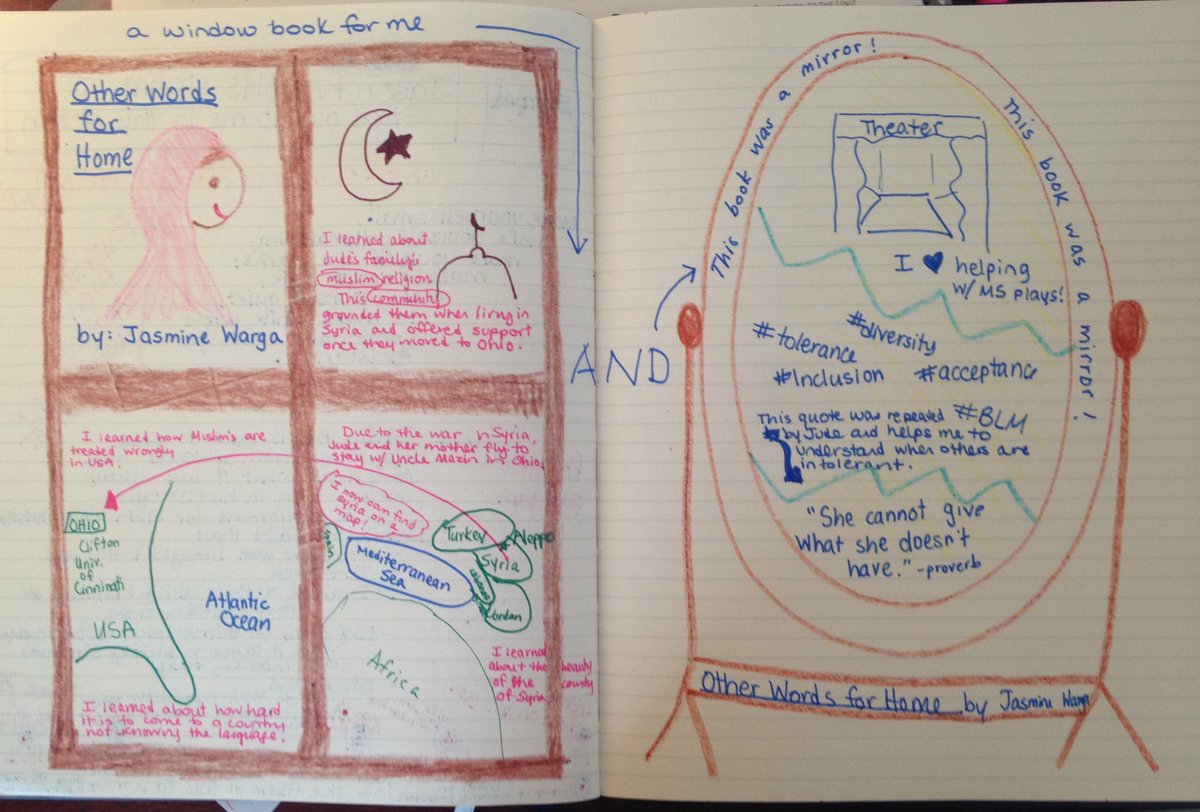 a window book for me
Other Words
for
Home
by: Jasmine Warga
I learned about
Jude's family's
muslim religion
This community
grounded them when living in
Syria and offered support
once they moved to Ohio.
I learned how Muslim's are
treated wrongly
in USA.
OHIO
Clifton
Univ.
of
Cinninati
USA
Atlantic
Ocean
I learned about how hard
it is to come to a country
not knowing the language.
Due to the war in Syria,
Jude and her mother fly to
stay w/ Uncle Mazin in Ohio.
I now can find
Syria on a
map!
Spain
Mediterranean
Sea
Turkey
Aleppo
Syria
Lebanon
Jordan
Africa
I learned
about the beauty
of the county
of Syria
AND
This book was a mirror!
This book was a mirror!
Theater
I helping
w/ MS plays!
#tolerance
#diversity
#Inclusion
#acceptance
#BLM
This quote was repeated
by Jude and helps me to
understand when others are
intolerant.
"She cannot give
what she doesn't
have." -proverb
Other Words for Home by Jasmine Warga